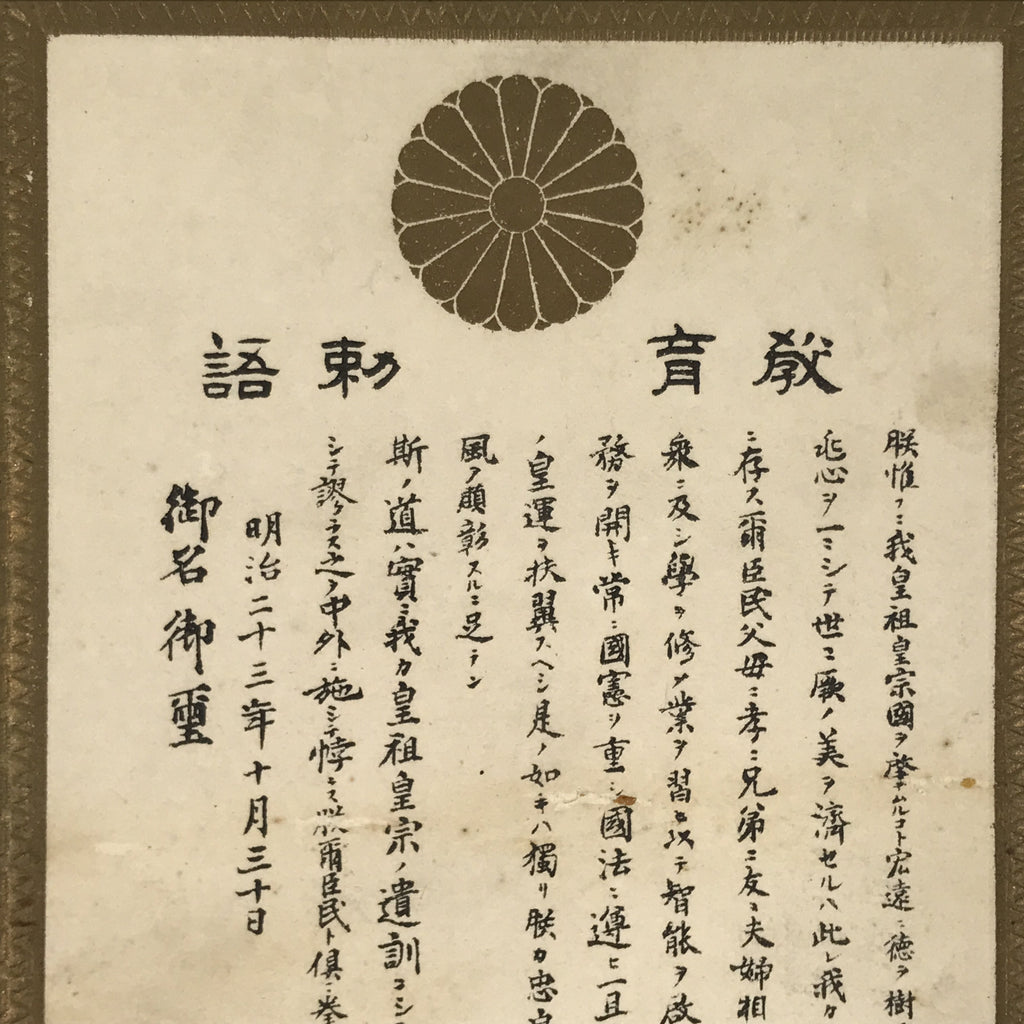 教育勅語
朕惟フニ我皇祖皇宗國ヲ肇ムルコト宏遠ニ徳ヲ樹
兆心ヲ一ニシテ世ニ厥ノ美ヲ濟セルハ此レ我カ
ニ存ス爾臣民父母ニ孝ニ兄弟ニ友ニ夫婦相
衆ニ及シ學ヲ修メ業ヲ習ヒ以テ智能ヲ啓
務ヲ開キ常ニ國憲ヲ重シ國法ニ遵ヒ一旦
ノ皇運ヲ扶翼スヘシ是ノ如キハ獨リ朕カ忠
風ヲ顯彰スルニ足ラン
斯ノ道ハ實ニ我カ皇祖皇宗ノ遺訓ニシ
シテ謬ラス之ヲ中外ニ施シテ悖ラス朕爾臣民ト倶ニ拳
明治二十三年十月三十日
御名御璽